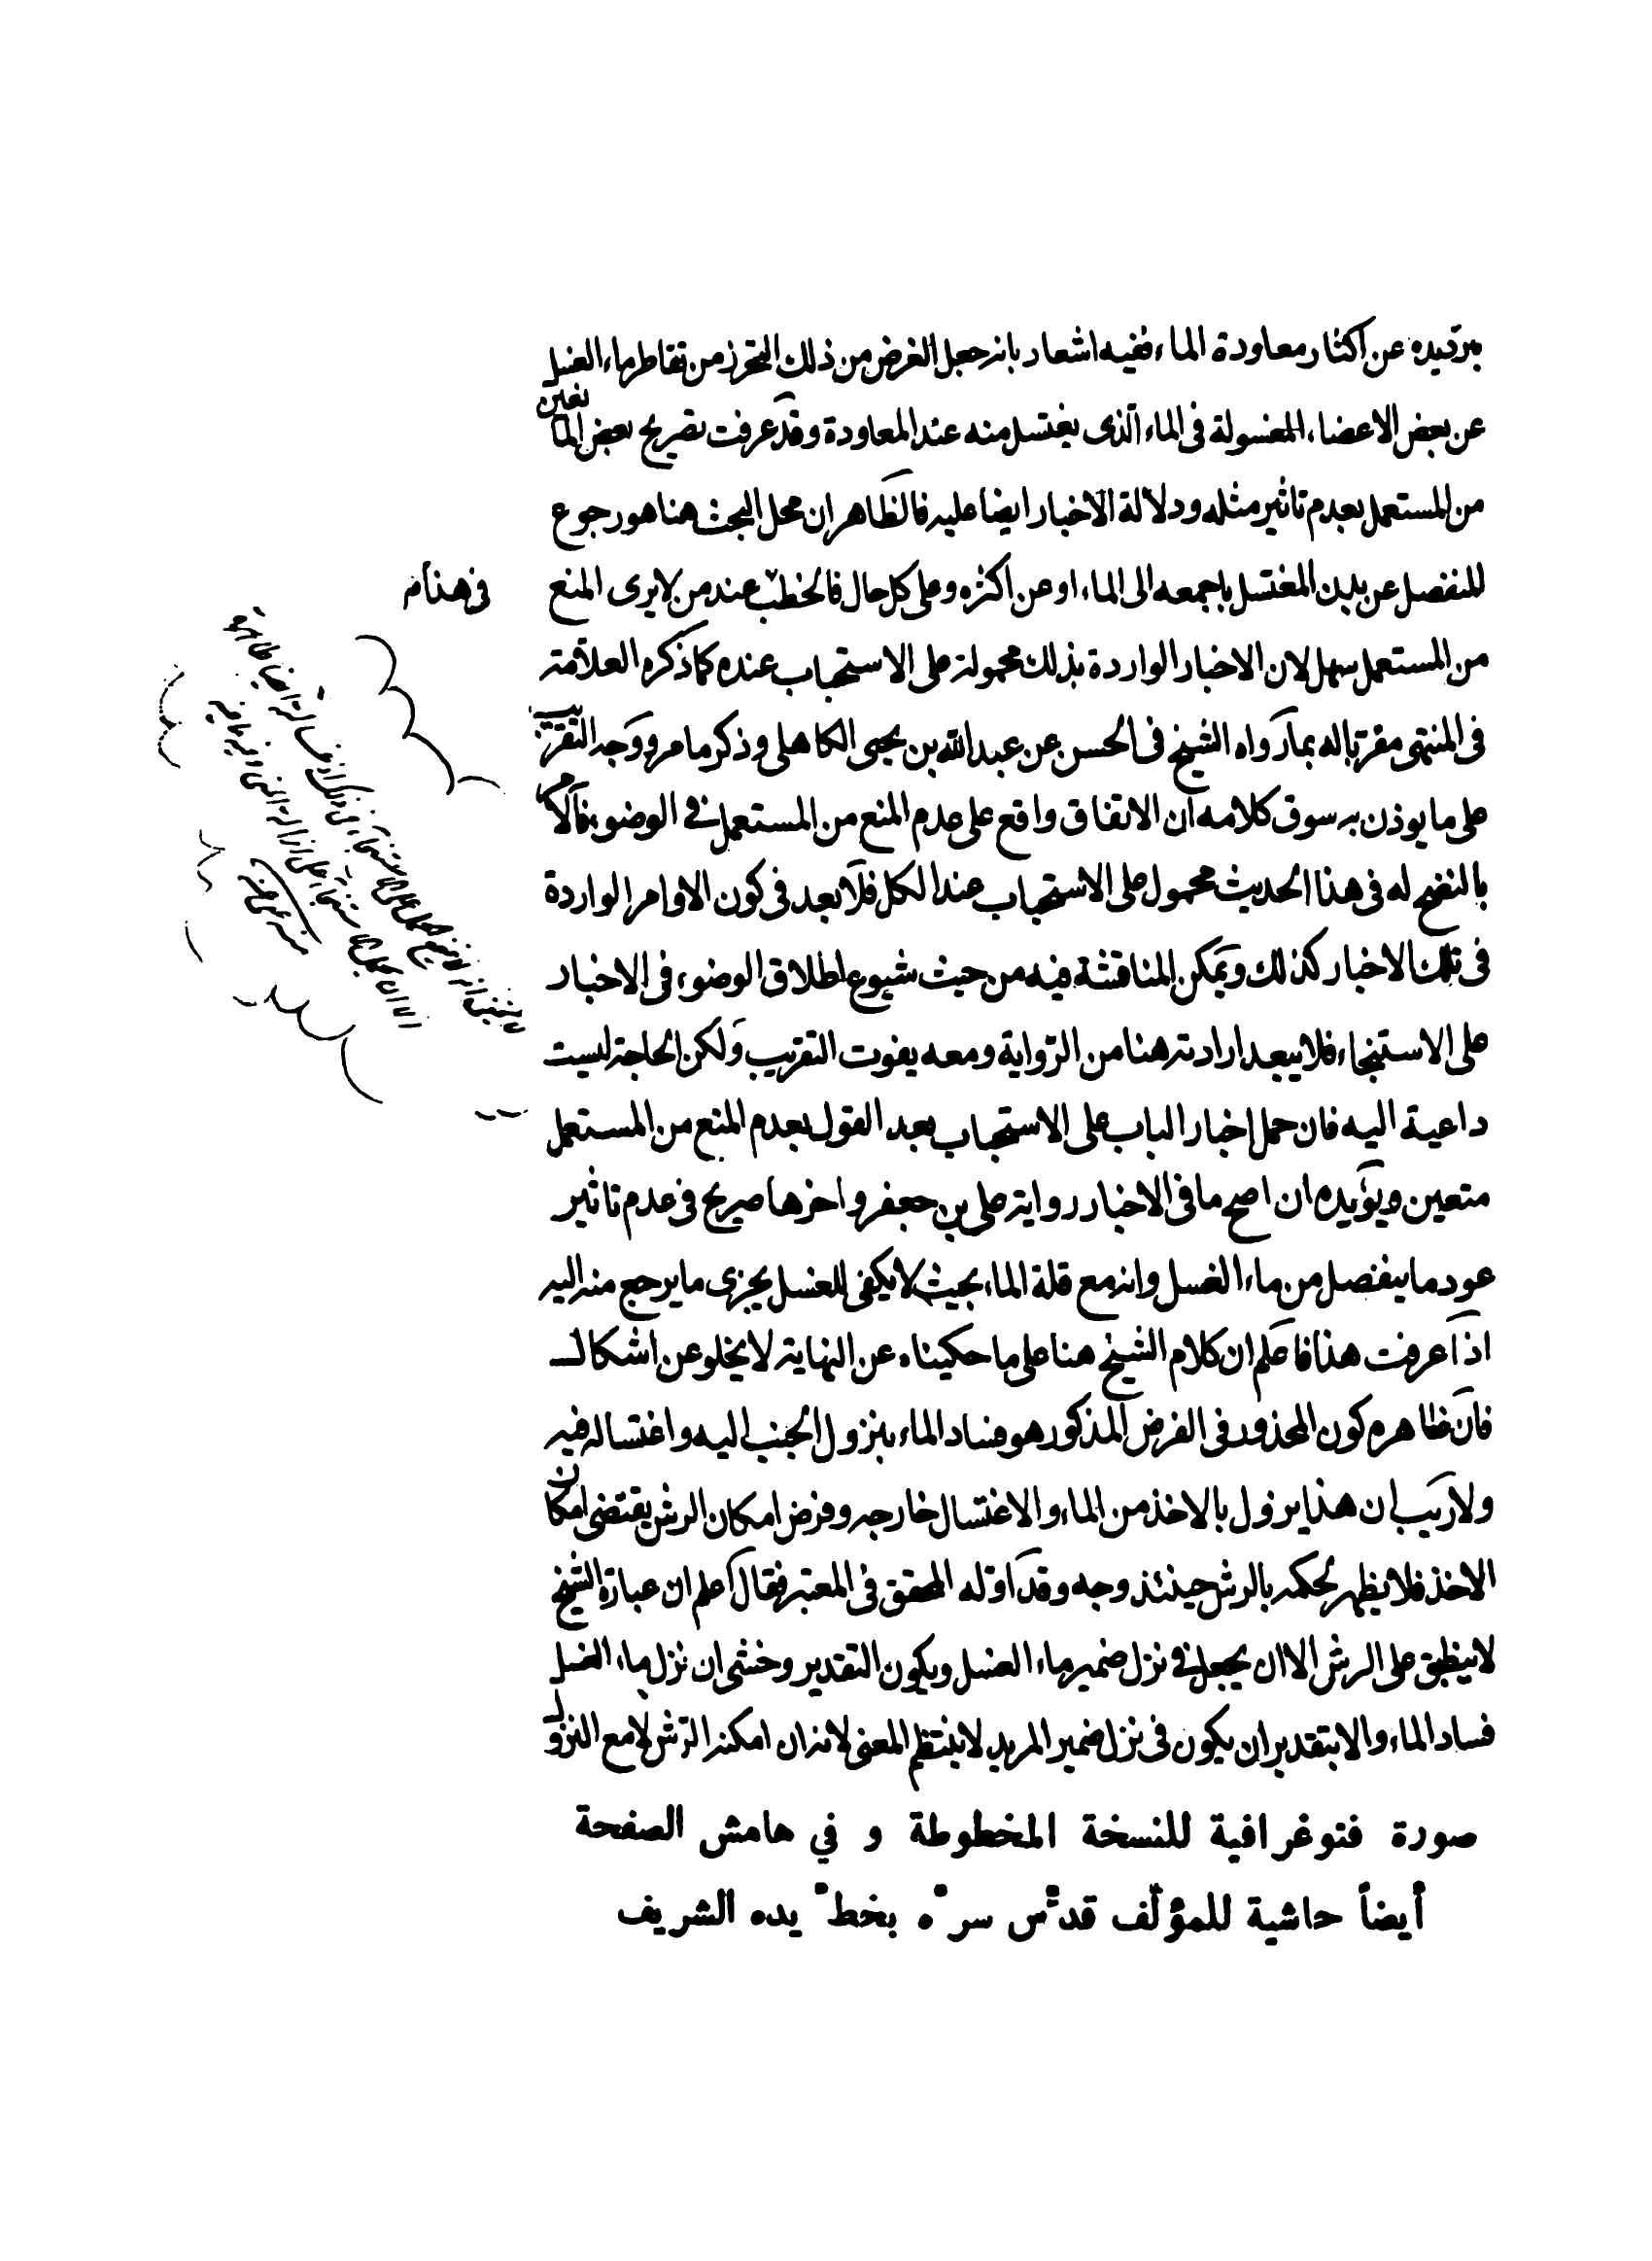 بترديده عن اكثار معاودة الماء ففيه اشعار بانه جعل الغرض من ذلك التحرز من تقاطر ماء الغسل
عن بعض الاعضاء المغسولة فى الماء الّذى يغتسل منه عند المعاودة وقد عرفت تصريح بعض المانعين
من المستعمل بعدم تاثير مثله ودلالة الاخبار ايضا عليه فالظاهر ان محل البحث هنا هو رجوع
المنفصل عن بدن المغتسل باجمعه الى الماء او عن اكثره وعلى كل حال فالخطب عند من لا يرى المنع
من المستعمل سهل لان الاخبار الواردة بذلك محمولة على الاستحباب عنده كما ذكره العلامة
فى المنتهى مقربا له بما رواه الشيخ فى الحسن عن عبد الله بن يحيى الكاهلى وذكر ما مر ووجه التقريب
على ما يوذن به سوق كلامه ان الاتفاق واقع على عدم المنع من المستعمل فى الوضوء فالامر
بالنضح له فى هذا الحديث محمول على الاستحباب عند الكل فلا بعد فى كون الاوامر الواردة
فى تلك الاخبار كذلك ويمكن المناقشة فيه من حيث شيوع اطلاق الوضوء فى الاخبار
على الاستنجاء فلا يبعد ارادته هنا من الرّواية ومعه يفوت التقريب ولكن الحاجة ليست
داعية اليه فان حمل اخبار الباب على الاستحباب بعد القول بعدم المنع من المستعمل
متعين ويؤيده ان اصح ما فى الاخبار رواية على بن جعفر واخرها صريح فى عدم تاثير
عود ما ينفصل من ماء الغسل وانه مع قلة الماء بحيث لا يكفى للغسل يجزى ما يرجع منه اليه
اذا عرفت هذا فاعلم ان كلام الشيخ هنا على ما حكيناه عن النهاية لا يخلو عن اشكال
فان ظاهره كون المحذور فى الفرض المذكور هو فساد الماء بنزول الجنب اليه واغتساله فيه
ولا ريب ان هذا يزول بالاخذ من الماء والاغتسال خارجه وفرض امكان الرش يقتضى امكان
الاخذ فلا يظهر لحكمه بالرش حينئذ وجه وقد اوّله المحقق فى المعتبر فقال اعلم ان عبارة الشيخ
لا ينطبق على الرش الا ان يجعل فى نزل ضمير ماء الغسل ويكون التقدير وخشى ان نزل ماء الغسل
فساد الماء والا بتقدير ان يكون فى نزل ضمير المريد لا ينتظم المعنى لانه ان امكنه الرّش لا مع النزول
فى هذا م
صورة فتوغرافية للنسخة المخطوطة و في هامش الصفحة
أيضاً حاشية للمؤلّف قدّس سرّه بخطّ يده الشريف